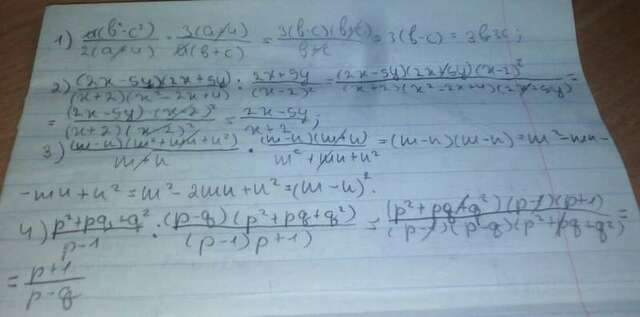 1) a(b²-c²)/2(a+4) · 3(a+4)/b(b+c) = 3(b-c)(b+c)/b+c = 3(b-c) = 3b-3c;
2) (2x-5y)(2x+5y)/(x+2)(x²-2x+4) : 2x+5y/(x-2)² = (2x-5y)(2x+5y)(x-2)²/(x+2)(x²-2x+4)(2x+5y) =
= (2x-5y)(x-2)²/(x+2)(x-2)² = 2x-5y/x+2;
3) (m-n)(m²+mn+n²)/m+n · (m-n)(m+n)/m²+mn+n² = (m-n)(m-n) = m²-mn-
-mn+n² = m²-2mn+n² = (m-n)².
4) p²+pq+q²/p-1 : (p-q)(p²+pq+q²)/(p-1)p+1) = (p²+pq+q²)(p-1)(p+1)/(p-1)(p-q)(p²+pq+q²) =
= p+1/p-q